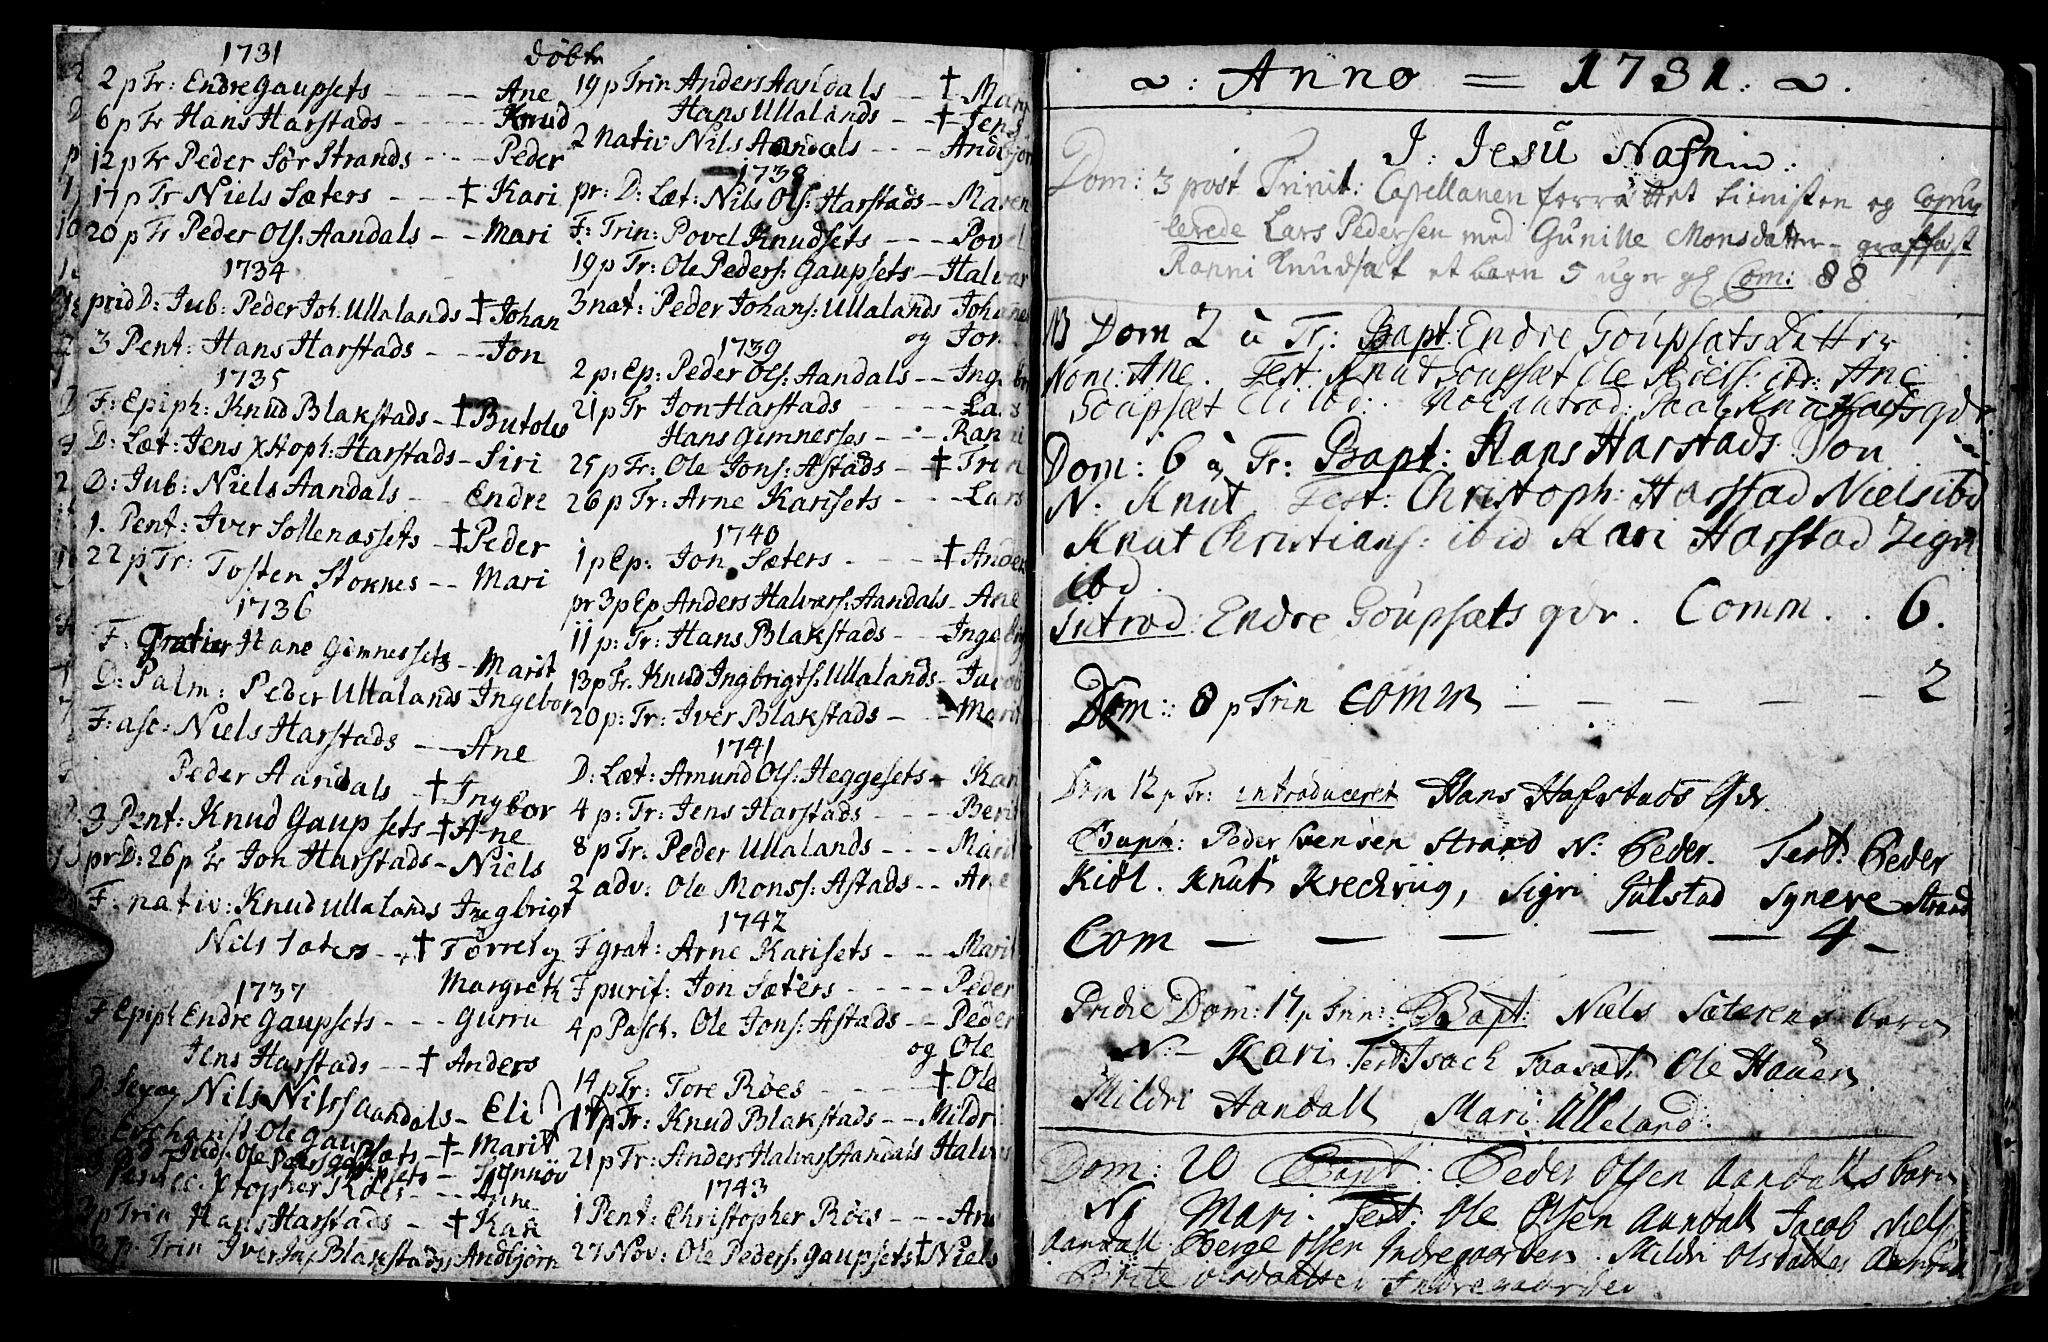 1731 döbte
2 p Tr: Endre Gaupsets - - - - Ane
6 p Tr Hans Harstads - - - - Knud
12 p Tr Peder Sør Strands - - - Peder
17 p Tr Niels Sæters - - - ‡ Kari
20 p Tr Peder Ols: Aandals - - Mari
1734
prid D: Jub: Peder Joh: Ullalands - ‡ Johan
3 Pent: Hans Harstads - - - Jon
1735
F: Epiph: Knud Blakstads - ‡ Butoles
D: Læt: Jens Xstoph: Harstads - Siri
D: Jub: Niels Aandals - - Endre
1. Pent: Iver Sollenæssets - ‡ Peder
22 p Tr: Tosten Stoknes - - Mari
1736
F: Gratiar Hans Gimnessets - Marit
D: Palm: Peder Ullalands Ingebor
F: asc: Niels Harstads - - Ane
Peder Aandals - † Ingebor
3 Pent: Knud Gaupsets - † Ane
pr D: 26 p Tr Jon Harstads - Niels
F. nativ: Knud Ullalands Ingbrigt
Nils Sæters - - † Torre og
Margreth
1737
F Epiph Endre Gaupsets - - - Gurru
Jens Harstads - - † Anders
Nils Nilss Aandals - Eli
Ole Gaupsets - † Marit
Synnöv
Xstopher Röes - - - Anne
p Trin Hans Harstads - - † Kari
p. Trin Iver Blakstads, Andbjörn
19 p Trin Anders Aandals - - † Mari
Hans Ullalands - † Jens
2 nativ: Nils Aandals - - - Andbjør
1738
pr: D: Læt: Nils Ols: Harstads - Maren
F: Trin: Povel Knudsets - - - Povel
19 p Tr: Ole Peders: Gaupsets - Halvar
3 nat: Peder Johans: Ullalands Johannes
og Jon
1739
2 p: Ep: Peder Ols: Aandals - - Ingebr
21 p Tr Jon Harstads - - - - Lars
Hans Gimnesses - - - Ranni
25 p Tr: Ole Jons: Astads - - ‡ Trin
26 p Tr: Arne Karisets - - - Lars
1740
1 p Ep: Jon Sæters - - - † Anders
pr 3 p Ep Anders Halvars: Aandals - Ane
11 p: Tr: Hans Blakstads - - Ingebrig
13 p Tr. Knud Ingbrigts: Ullalands - Jacob
20 p: Tr: Iver Blakstads - - - Marit
1741
D: Læt: Amund Ols: Heggesets - Kari
4 p: Tr: Jens Harstads - - - - Berit
8 p Tr: Peder Ullalands - - - Marit
2 adv: Ole Monss: Astads - - Ane
1742
F grat: Arne Karisets - - - Marit
F purif: Jon Sæters - - - - - Peder
4 p Pasch. Ole Jons: Astads - - Peder
og Ole
14 p Tr: Tore Röes - - - - † Ole
17 p Tr: Knud Blakstads - - Mildri
21 p Tr: Anders Halvars Aandals Halvar
1743
1 Pent: Christopher Röes - - - Arn
27 Nov: Ole Peders: Gaupsets † Niels
~: Anno = 1731: ~.
I: Jesu Nafn:
Dom: 3 post Trinit: Capellanen forrættet tienisten og Copu
lerede Lars Pedersen med Gunille Monsdatter - graffæst
Ranni Knudsæt et barn 5 uger gl Com: 88
Dom 2 à Tr: Bapt: Endre Goupsæts Datter
Nom: Ane. Test. Knut Goupsæt Ole ibd: Ane
Goupsæt Eli ibd: introd. Paal Knutsæts qdr.
Dom: 6 à Tr: Bapt: Hans Harstads Son
N: Knut Test: Christoph: Harstad Niels ibd
Knut Christians: ibid Kari Harstad
ibd.
Introd: Endre Goupsæts qdr. Comm . . 6.
Dom: 8 p Trin Comm - - - - - 2
Dom 12 p Tr: introduceret Hans Hafstads Qdr.
Bapt: Peder Svensen Strand N: Peder. Test: Peder
Kidl. Knut Kreckvig, Sigri Gulstad Syneve Strand
Com - - - - - 4 -
Pridie Dom: 17 p Trin: Bapt: Niels Sæterens barn
N: - Kari Test: Isach Ole Hauen.
Mildri Aandall Mari Ulleland.
Dom: 20 Bapt: Peder Olsen Aandalls barn
N: Mari. Test: Ole Olsen Aandall Jacob Niels
Aandall. Berge Olsen Indregaarden. Mildri Olsdatter Aandall
Brite Olsdaatter Indregaarden